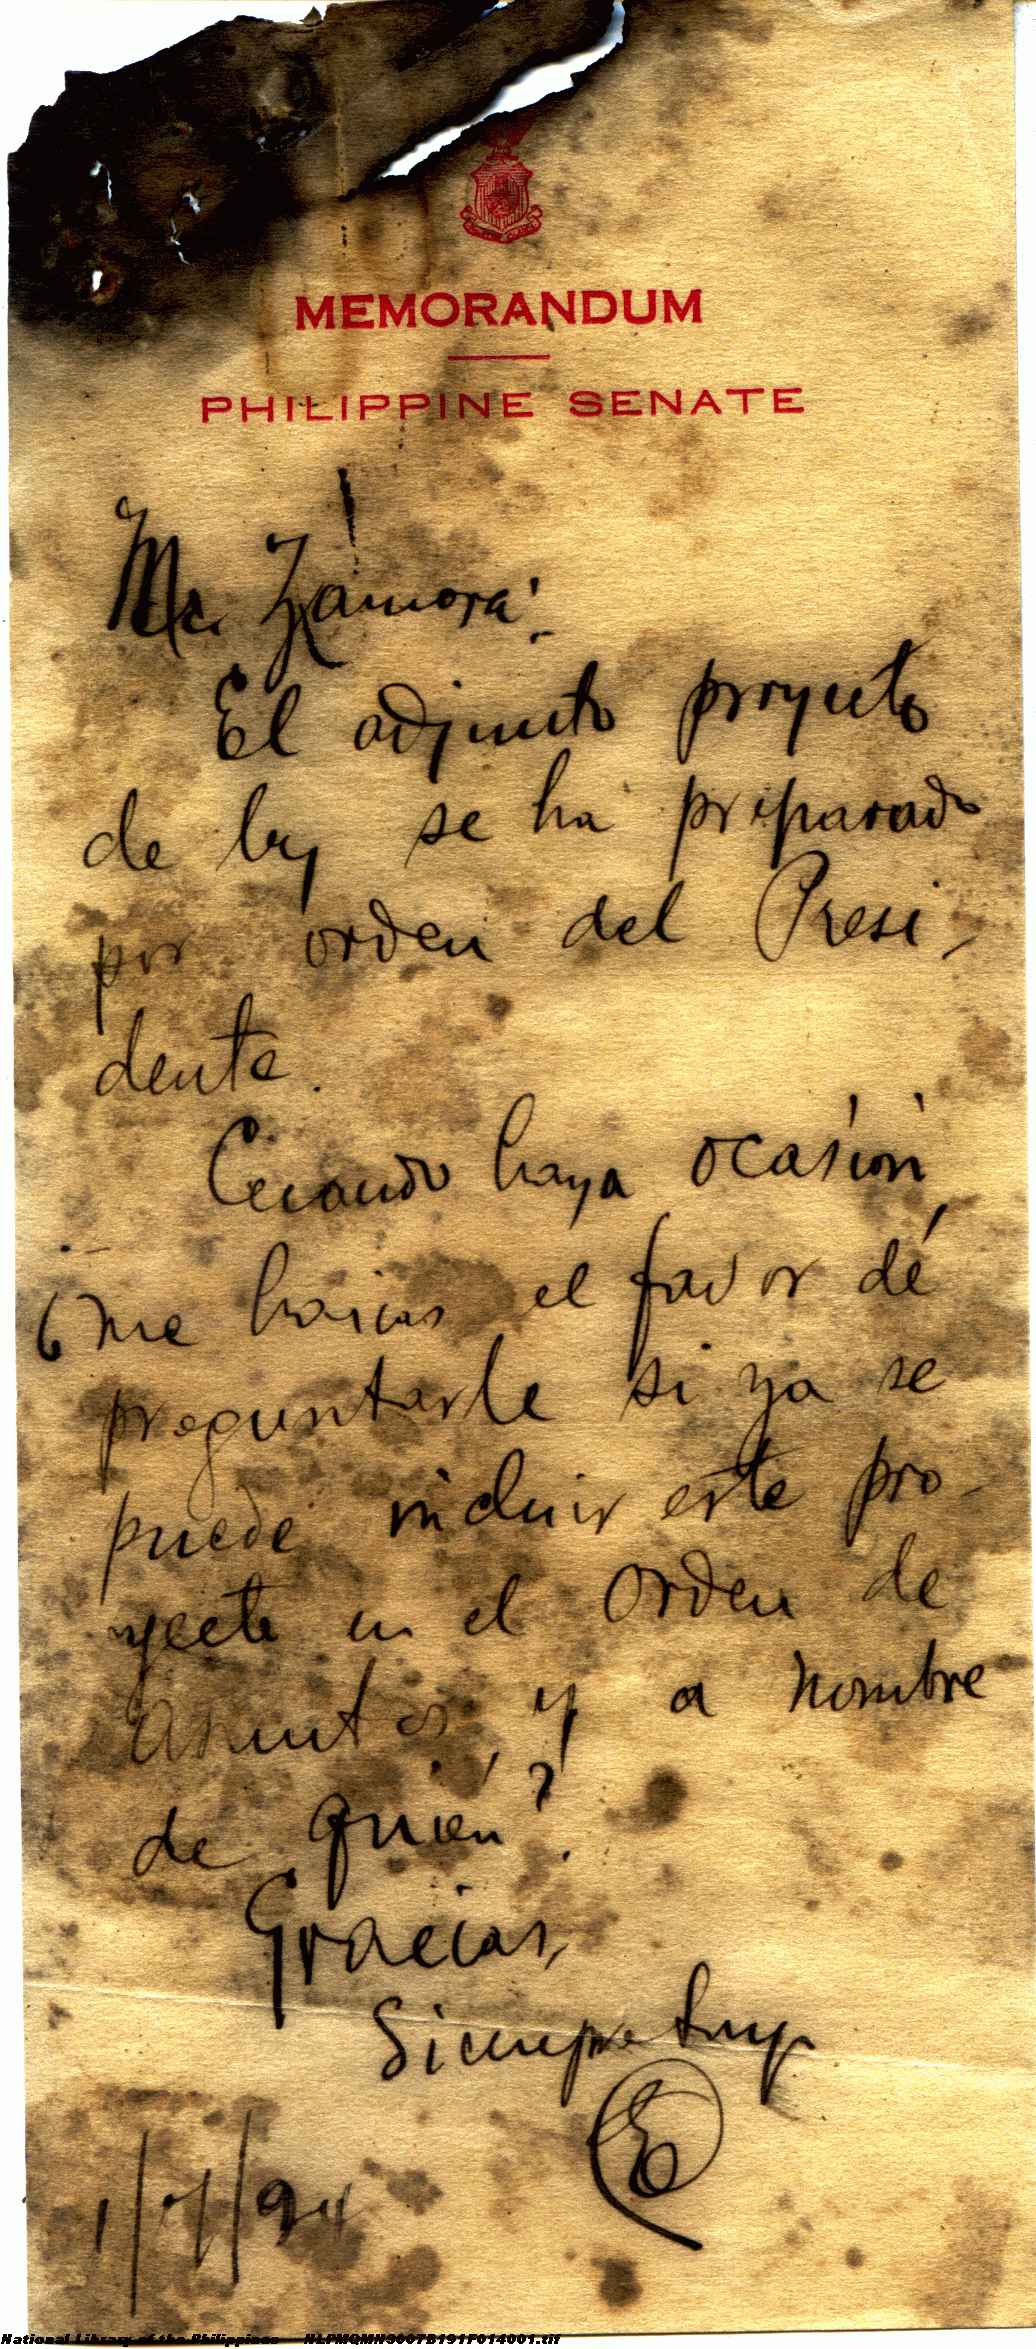 MEMORANDUM
PHILIPPINE SENATE
Mr. Zamora:
El adjunto proyecto
de ley se ha preparado
por orden del Presi-
dente.
Cuando haya ocasión,
¿me harías el favor de
preguntarle si ya se
puede incluir este pro-
yecto en el Orden de
Asuntos y a nombre
de quién?
Gracias,
Siempre tuyo
National Library of the Philippines